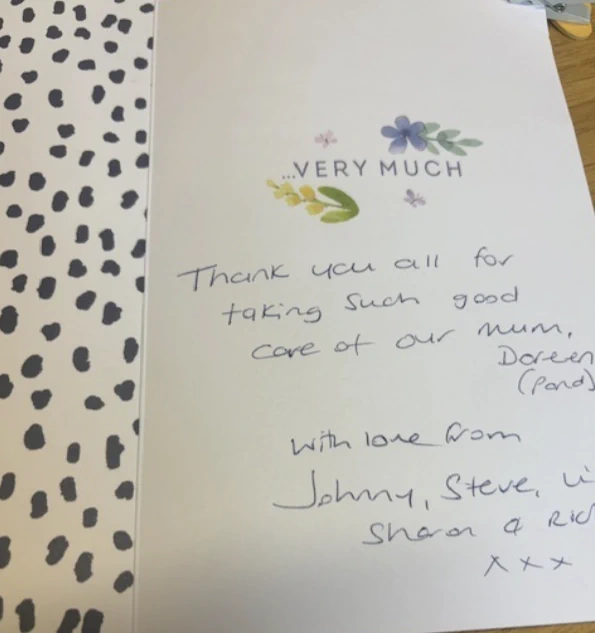 ...VERY MUCH
Thank you all for
taking such good
care of our mum,
Doreen
(Pond)
with love from
Johnny, Steve,
Sharon &
x x x